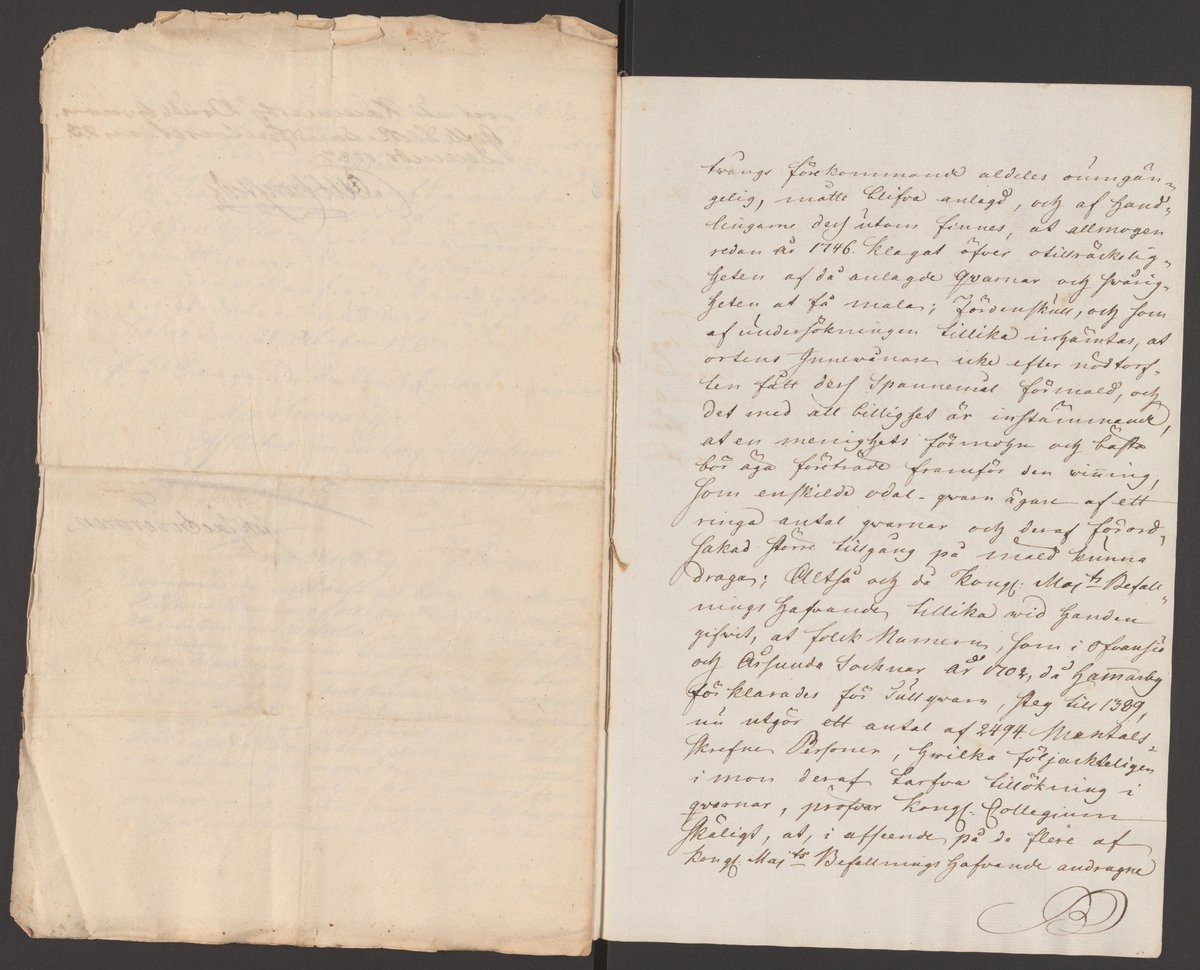 twångs förekommande aldeles oumgän-
gelig, måtte blifva anlagd, och af Hand-
lingarne dess utom finnes, at allmogen
redan år 1746. klagat öfver otillräckelig-
heten af då anlagde qvarnar och swårig-
heten at få mala; Fördenskull, och som
af undersökningen tillika inhämtas, at
ortens Innewånare icke efter nödtorf-
ten fått dess Spannemål förmald, och
det med all billighet är instämmande,
at en menighets förmohn och bästa
bör äga företräde framför den winning,
som enskilde odal-qvarn ägare af ett
ringa antal qvarnar och deraf förord-
sakad större tillgång på mäld kunna
draga; Altså och då Kongl. Maj:ts Befall-
nings Hafvande tillika wid handen
gifwit, at folck Numern, som i Ofvansjö
och Årsunda Socknar år 1702, då Hammarby
förklarades för Tullqvarn, steg till 1389,
nu utgör ett antal af 2494 Mantals-
skrefne Personer, hwilka följackteligen
i mon deraf tarfva tillökning i
qvarnar, pröfvar Kongl. Collegium
skäligt, at, i afseende på de flere af
Kongl. Maj:ts Befallnings Hafvande andragne